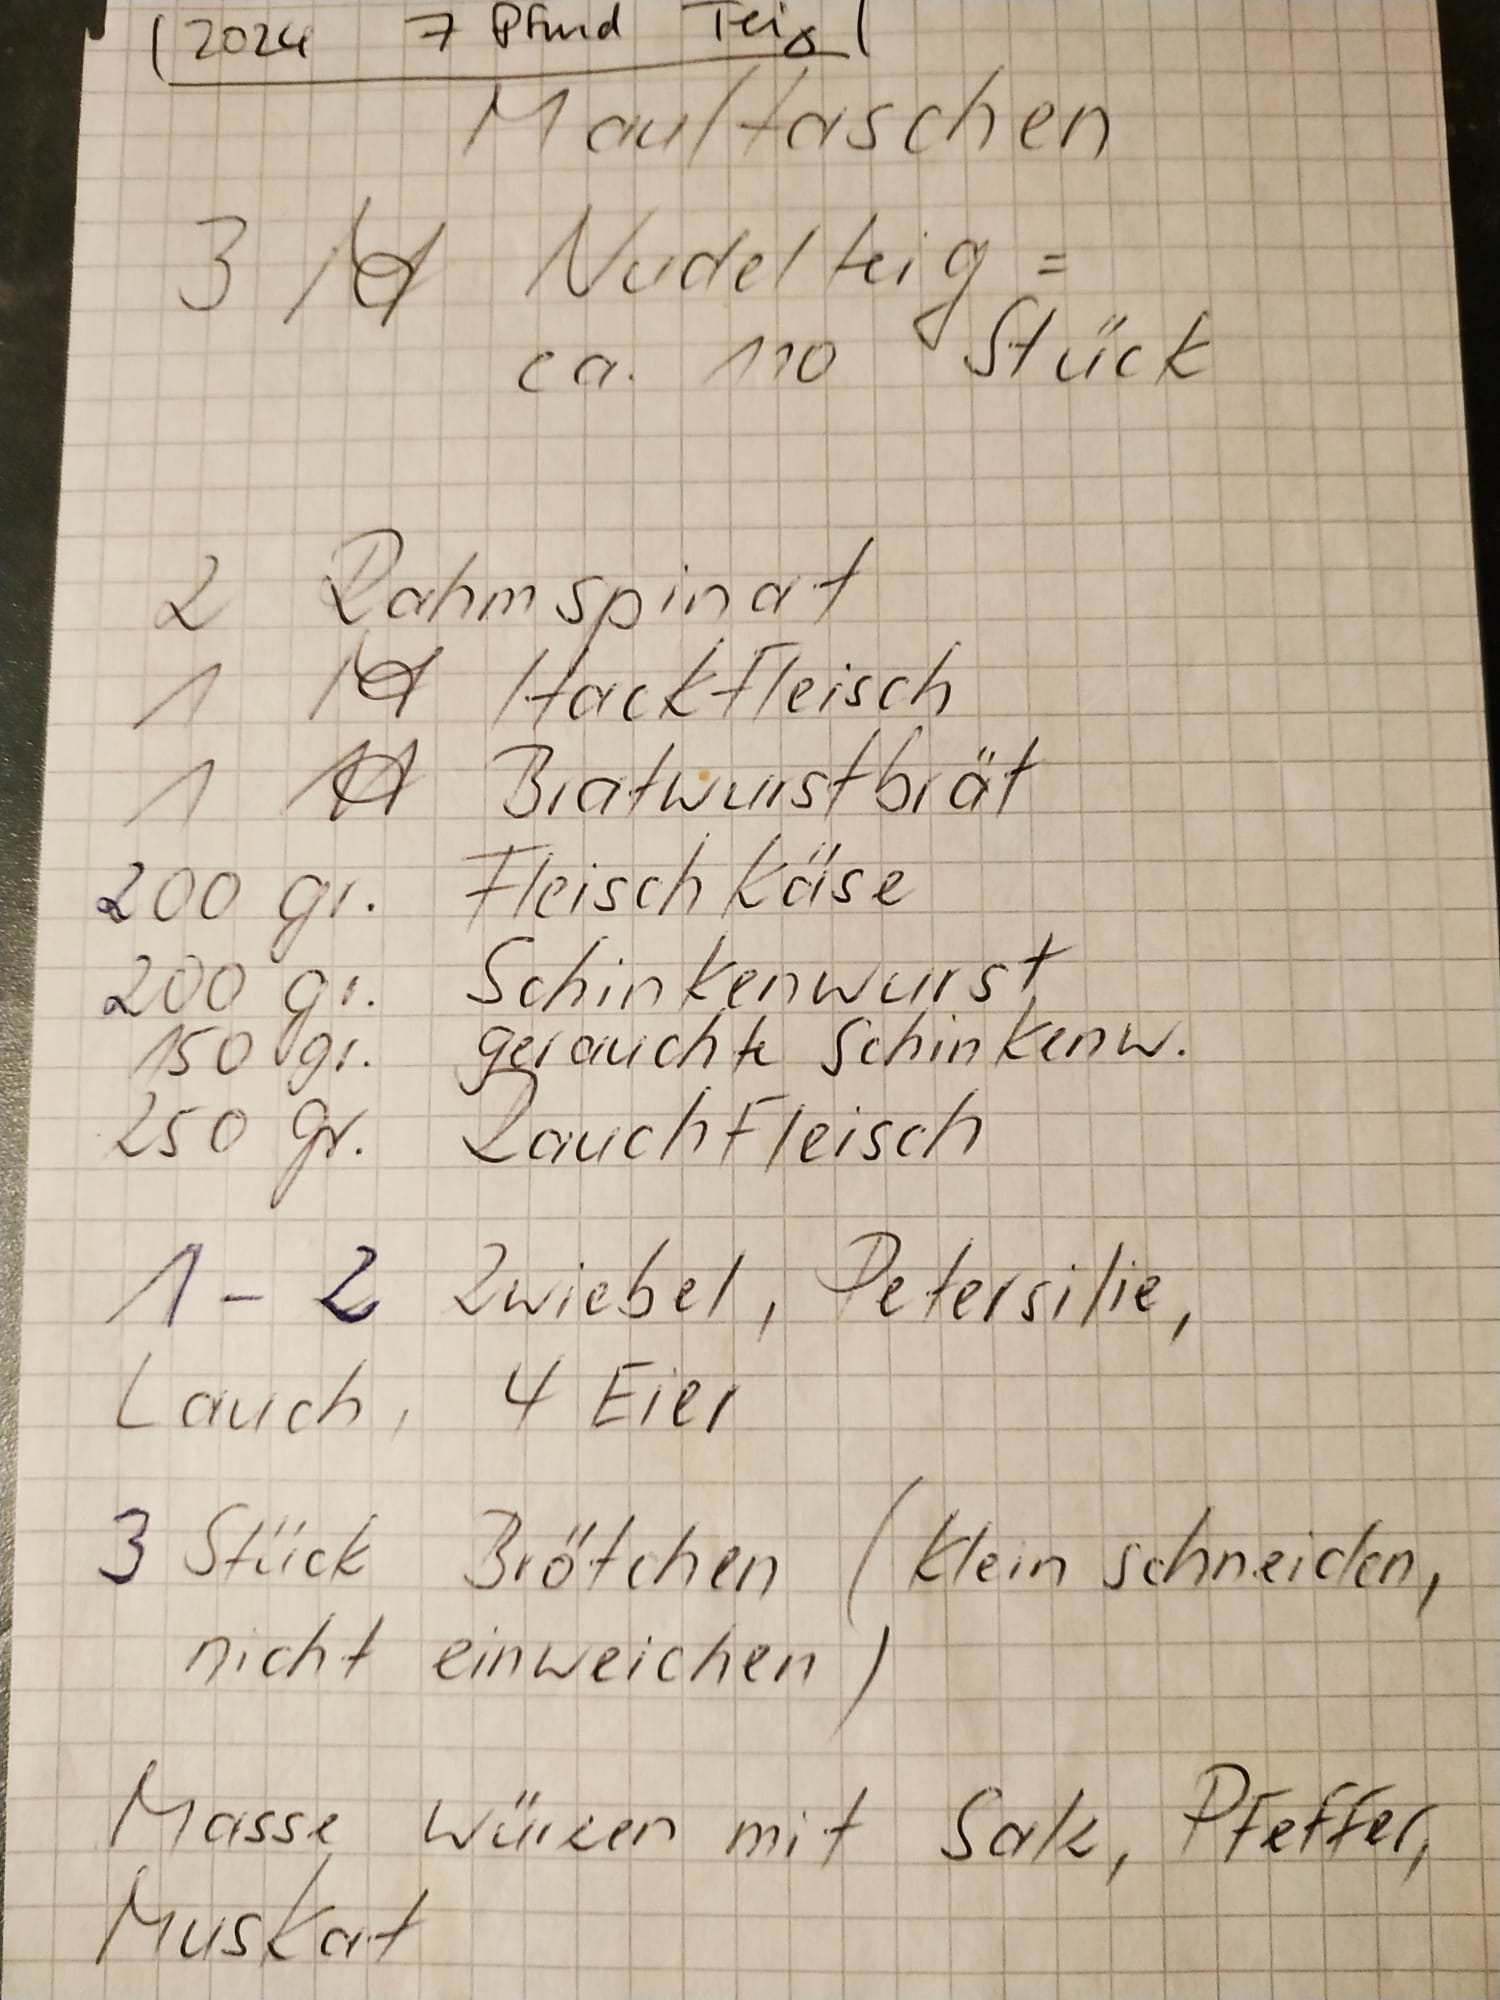 (2024 7 Pfund Teig)
Maultaschen
3 ℔ Nudelteig =
ca. 110 Stück
2 Rahmspinat
1 ℔ Hackfleisch
1 ℔ Bratwurstbrät
200 gr. Fleischkäse
200 gr. Schinkenwurst
150 gr. gerauchte Schinkenw.
250 gr. Rauchfleisch
1 - 2 Zwiebel, Petersilie,
Lauch, 4 Eier
3 Stück Brötchen (klein schneiden,
nicht einweichen)
Masse würzen mit Salz, Pfeffer,
Muskat